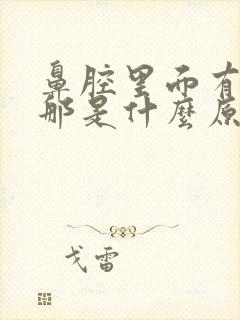 鼻腔里而有
那是什麼原
戈雷